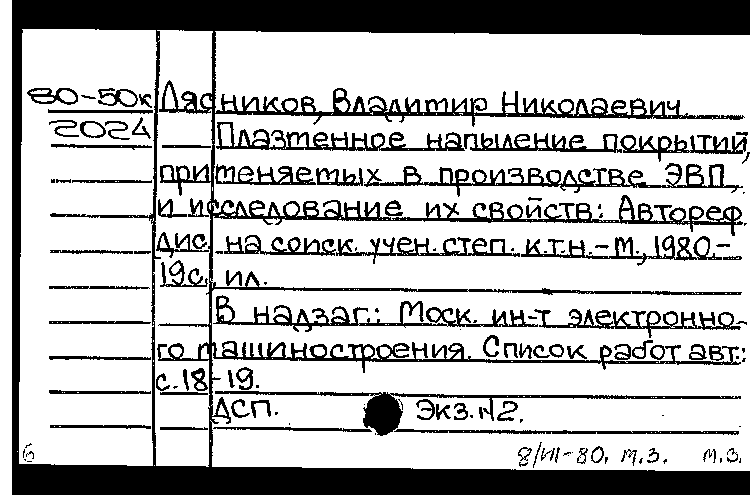 80-50к Лясников, Владимир Николаевич
2024 Плазменное напыление покрытий,
применяемых в производстве ЭВП,
и исследование их свойств: Автореф
дис. на соиск. учен. степ. к.т.н. - М., 1980.-
19с., ил.
В надзаг.: Моск. ин-т электронно-
го машиностроения. Список работ авт.:
с. 18-19.
ДСП. Экз. №2.
6 8/VII-80. М.З. М.З.